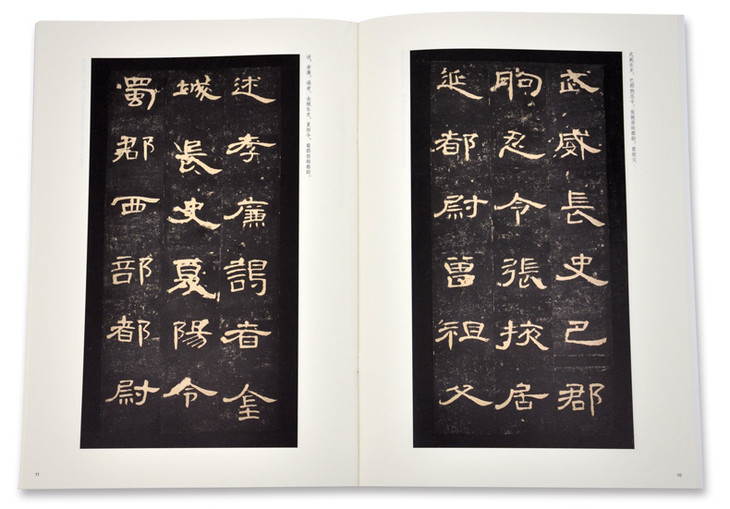 武威长史、巴郡朐忍令、张掖居延都尉。曾祖父
武威長史巴郡
朐忍令張掖居
延都尉曾祖父
10
述，孝廉、谒者、金城长史、夏阳令、蜀郡西部都尉。
述孝廉謁者金
城長史夏陽令
蜀郡西部都尉
11